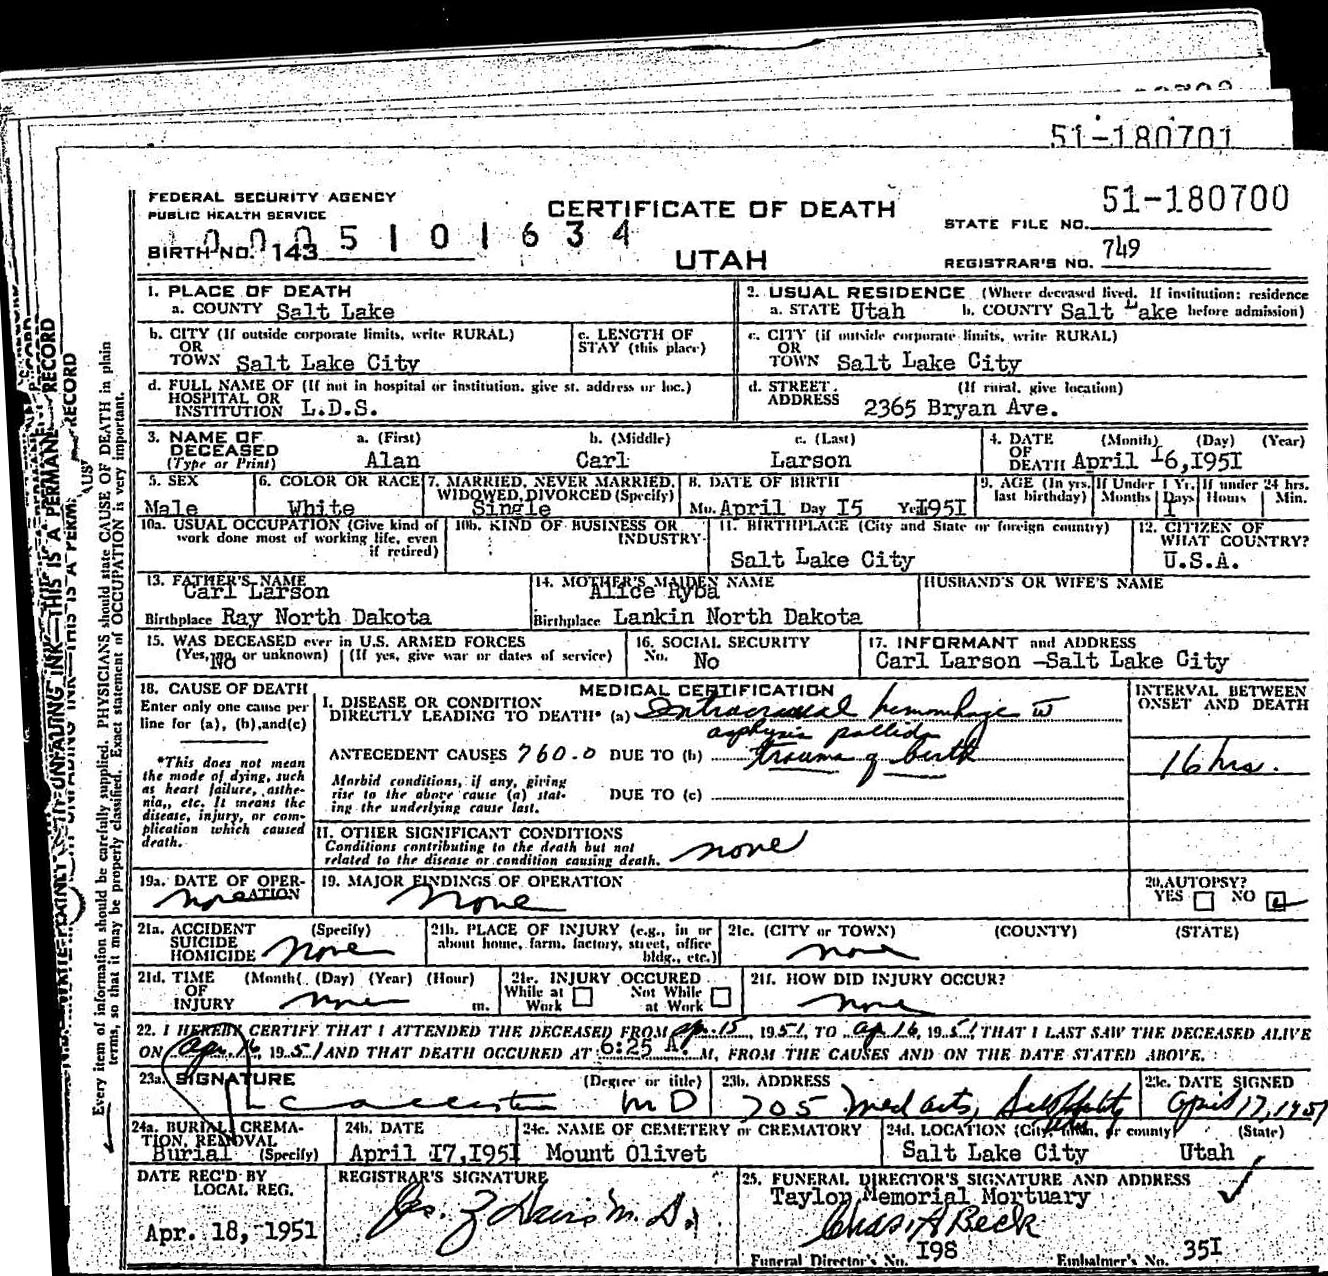 51-180701
FEDERAL SECURITY AGENCY
PUBLIC HEALTH SERVICE
CERTIFICATE OF DEATH
51-180700
STATE FILE NO.
BIRTH NO. 143
0005101634
UTAH
REGISTRAR'S NO. 749
1. PLACE OF DEATH
a. COUNTY Salt Lake
2. USUAL RESIDENCE (Where deceased lived. If institution: residence
a. STATE Utah b. COUNTY Salt Lake before admission)
b. CITY (If outside corporate limits, write RURAL)
OR
TOWN Salt Lake City
c. LENGTH OF
STAY (this place)
c. CITY (if outside corporate limits, write RURAL)
OR
TOWN Salt Lake City
d. FULL NAME OF (If not in hospital or institution, give st. address or loc.)
HOSPITAL OR
INSTITUTION L.D.S.
d. STREET (If rural, give location)
ADDRESS 2365 Bryan Ave.
3. NAME OF
DECEASED
(Type or Print)
a. (First) b. (Middle) c. (Last)
Alan Carl Larson
4. DATE (Month) (Day) (Year)
OF
DEATH April 16,1951
5. SEX
Male
6. COLOR OR RACE
White
7. MARRIED, NEVER MARRIED,
WIDOWED, DIVORCED (Specify)
Single
8. DATE OF BIRTH
Mo. April Day 15 Yr. 1951
9. AGE (In yrs. last birthday)
If Under 1 Yr.
Months Days
1
If under 24 hrs.
Hours Min.
10a. USUAL OCCUPATION (Give kind of
work done most of working life, even
if retired)
10b. KIND OF BUSINESS OR
INDUSTRY
11. BIRTHPLACE (City and State or foreign country)
Salt Lake City
12. CITIZEN OF
WHAT COUNTRY?
U.S.A.
13. FATHER'S NAME
Carl Larson
Birthplace Ray North Dakota
14. MOTHER'S MAIDEN NAME
Alice Ryba
Birthplace Lankin North Dakota
HUSBAND'S OR WIFE'S NAME
15. WAS DECEASED ever in U.S. ARMED FORCES
(Yes, No or unknown) (If yes, give war or dates of service)
No
16. SOCIAL SECURITY
No. No
17. INFORMANT and ADDRESS
Carl Larson -Salt Lake City
18. CAUSE OF DEATH
Enter only one cause per
line for (a), (b), and (c)
*This does not mean
the mode of dying, such
as heart failure, asthe-
nia, etc. It means the
disease, injury, or com-
plication which caused
death.
MEDICAL CERTIFICATION
I. DISEASE OR CONDITION
DIRECTLY LEADING TO DEATH* (a) Intracranial hemorrhage w
asphyxia pallida
ANTECEDENT CAUSES 760.0 DUE TO (b) trauma of birth
Morbid conditions, if any, giving
rise to the above cause (a) stat-
ing the underlying cause last.
DUE TO (c)
INTERVAL BETWEEN
ONSET AND DEATH
16 hrs.
II. OTHER SIGNIFICANT CONDITIONS
Conditions contributing to the death but not
related to the disease or condition causing death. none
19a. DATE OF OPER-
ATION
none
19. MAJOR FINDINGS OF OPERATION
None
20. AUTOPSY?
YES NO
21a. ACCIDENT (Specify)
SUICIDE
HOMICIDE none
21b. PLACE OF INJURY (e.g., in or
about home, farm, factory, street, office
bldg., etc.)
21c. (CITY or TOWN) (COUNTY) (STATE)
none
21d. TIME (Month) (Day) (Year) (Hour)
OF
INJURY none m.
21e. INJURY OCCURED
While at Work Not While at Work
21f. HOW DID INJURY OCCUR?
none
22. I HEREBY CERTIFY THAT I ATTENDED THE DECEASED FROM Apr. 15, 1951, TO Ap 16, 1951 THAT I LAST SAW THE DECEASED ALIVE
ON Apr. 16, 1951 AND THAT DEATH OCCURED AT 6:25 A. M, FROM THE CAUSES AND ON THE DATE STATED ABOVE.
23a. SIGNATURE (Degree or title)
MD
23b. ADDRESS
705 Med arts,
23c. DATE SIGNED
April 17, 1951
24a. BURIAL, CREMA-
TION, REMOVAL
Burial (Specify)
24b. DATE
April 17,1951
24c. NAME OF CEMETERY or CREMATORY
Mount Olivet
24d. LOCATION (City, town, or county) (State)
Salt Lake City Utah
DATE REC'D BY
LOCAL REG.
Apr. 18, 1951
REGISTRAR'S SIGNATURE
25. FUNERAL DIRECTOR'S SIGNATURE AND ADDRESS
Taylor Memorial Mortuary
Chas. A Beck
Funeral Director's No. 198 Embalmer's No. 351
Every item of information should be carefully supplied. PHYSICIANS should state CAUSE OF DEATH in plain
terms, so that it may be properly classified. Exact statement of OCCUPATION is very important.